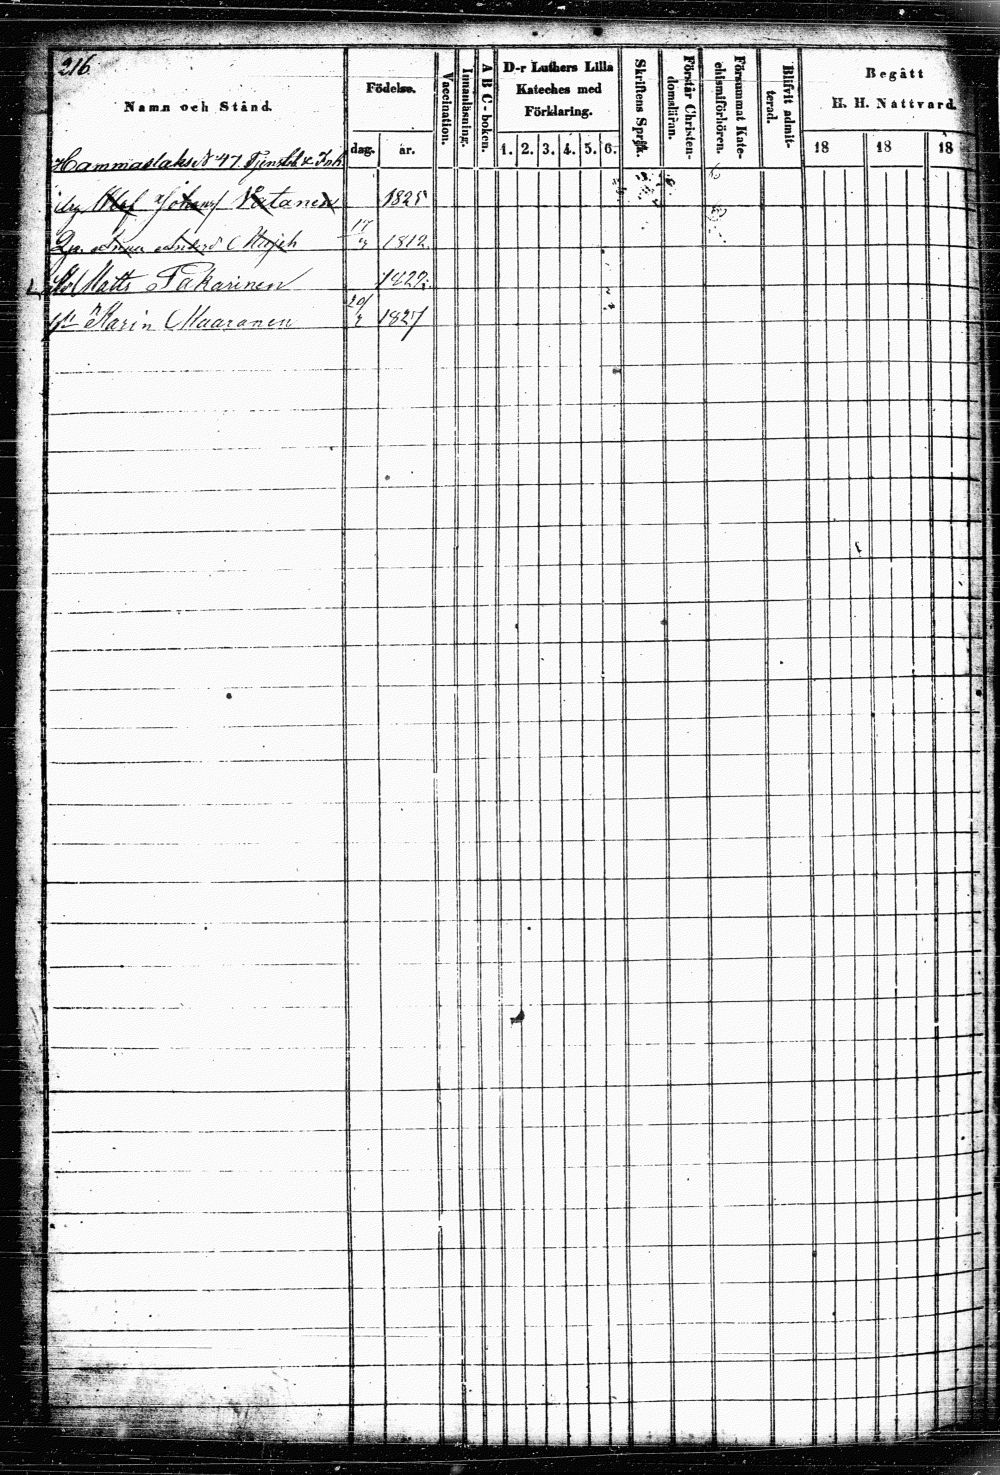 216
Namn och Stånd.
Födelse.
dag.
år.
Vaccination.
Innanläsning.
A B C-boken.
D-r Luthers Lilla
Kateches med
Förklaring.
1. 2. 3. 4. 5. 6.
Skriftens Språk.
Förstår Christen-
domsläran.
Försummat Kate-
chismiförhören.
Blifvit admit-
terad.
Begått
H. H. Nattvard.
18 18 18
Hammaslaks N 47.
Johans Vatanen 1825
17/9 1812
Matts Pakarinen
Karin Maaranen 1827